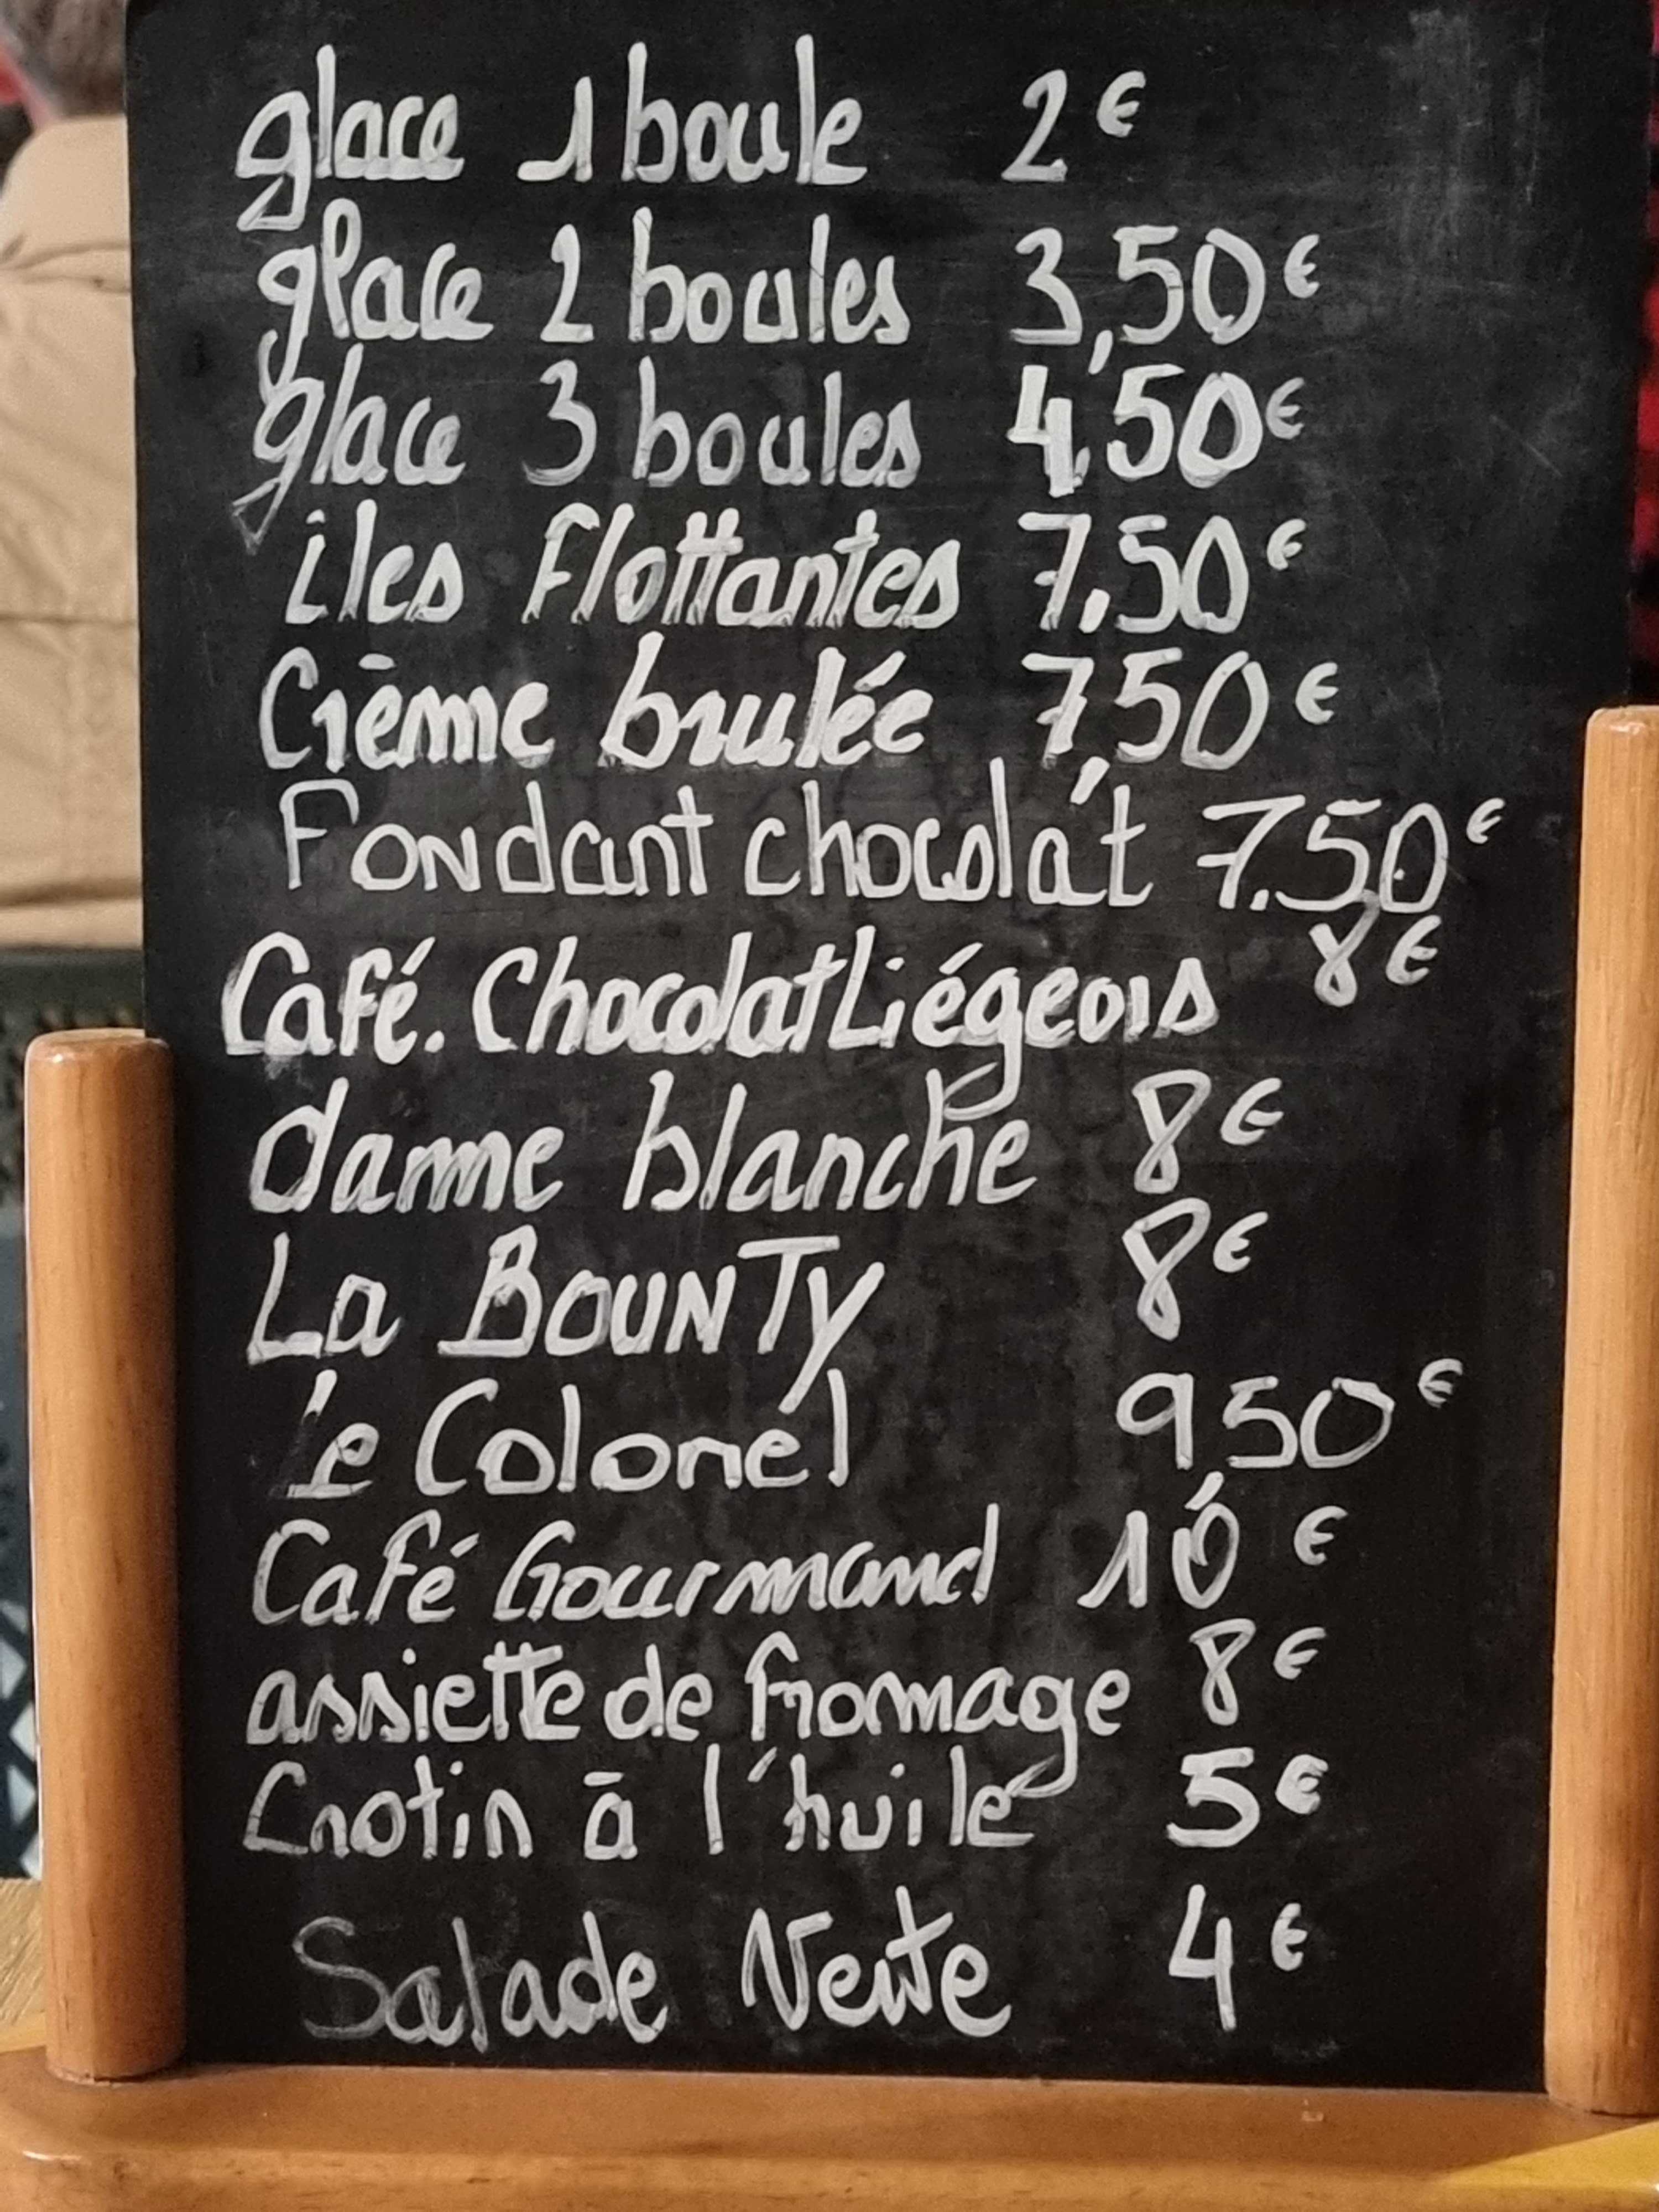 glace 1 boule 2€
glace 2 boules 3,50€
glace 3 boules 4,50€
iles Flottantes 7,50€
Crème brulée 7,50€
Fondant chocolat 7.50€
Café. Chocolat Liégeois 8€
dame blanche 8€
La BOUNTy 8€
Le Colonel 9,50€
Café Gourmand 10€
assiette de fromage 8€
Crotin à l'huile 5€
Salade Verte 4€